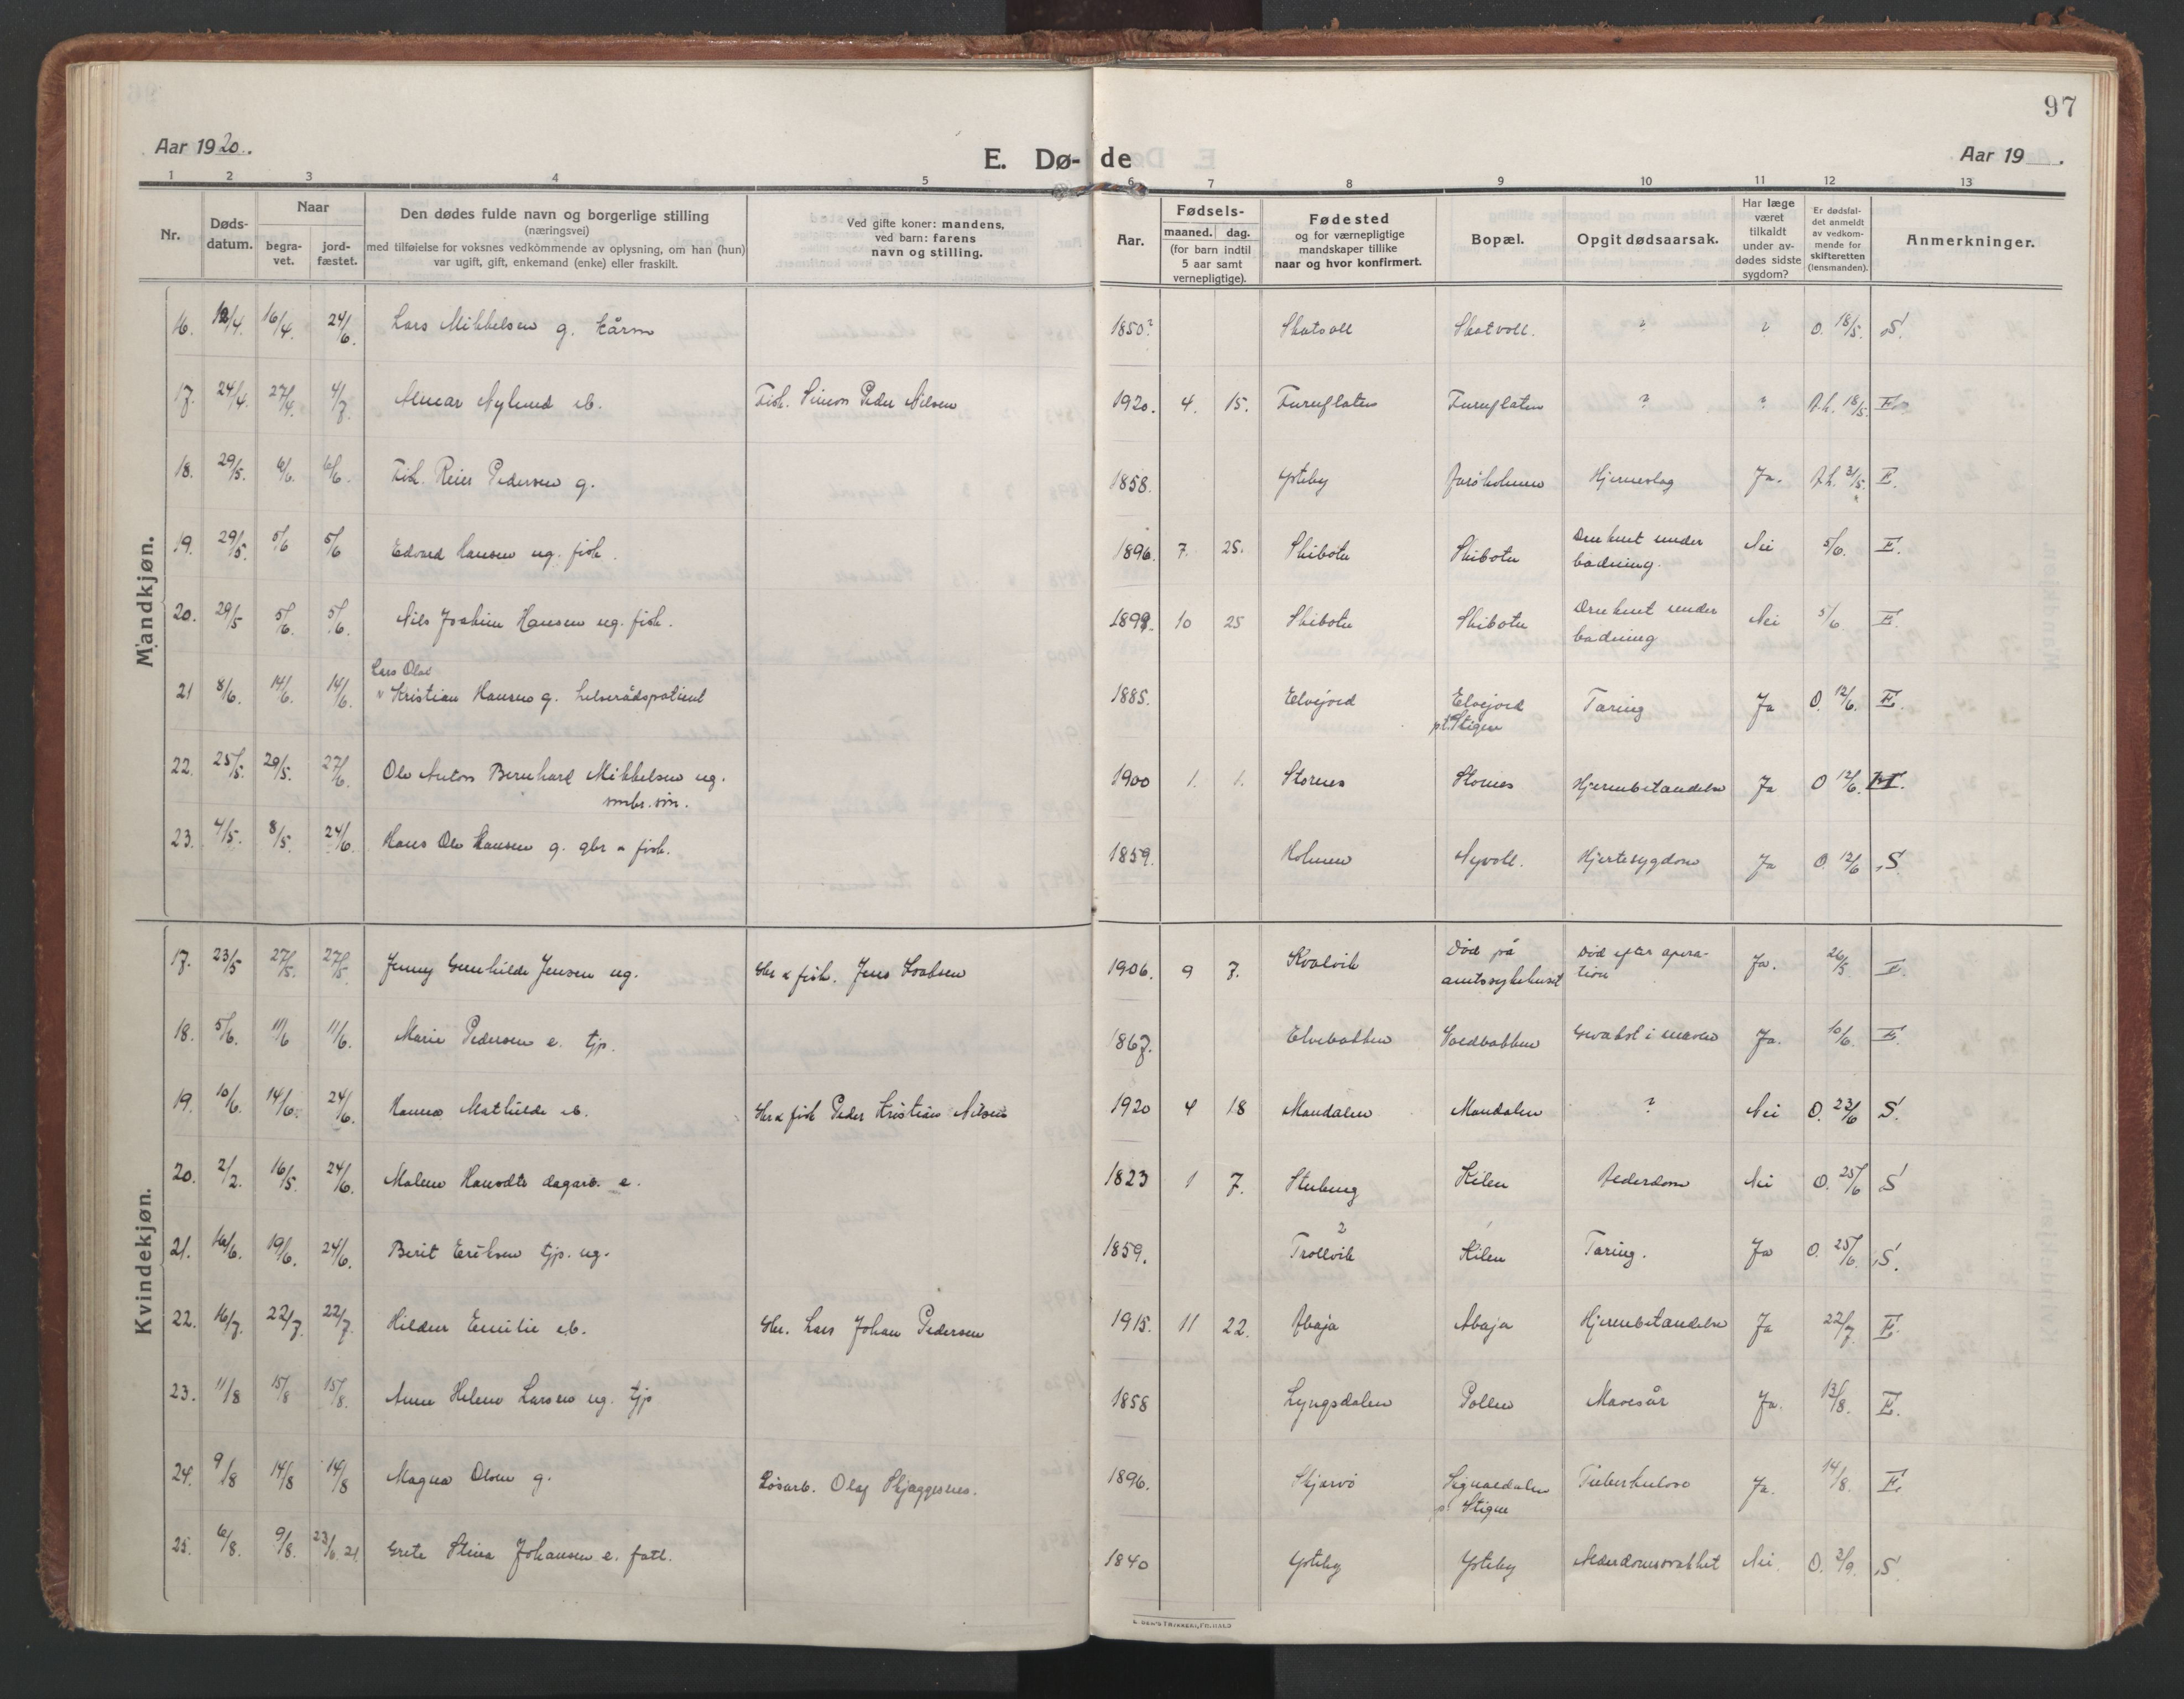 97
Aar 1920.
E. Dø- de
Aar 19 .
1 2 3 4 5 6 7 8 9 10 11 12 13
Nr.
Døds-
datum.
Naar
begra-
vet.
jord-
fæstet.
Den dødes fulde navn og borgerlige stilling
(næringsvei)
med tilføielse for voksnes vedkommende av oplysning, om han (hun)
var ugift, gift, enkemand (enke) eller fraskilt.
Ved gifte koner: mandens,
ved barn: farens
navn og stilling.
Aar.
Fødsels-
maaned. dag.
(for barn indtil
5 aar samt
vernepligtige).
Fødested
og for værnepligtige
mandskaper tillike
naar og hvor konfirmert.
Bopæl.
Opgit dødsaarsak.
Har læge
været
tilkaldt
under av-
dødes sidste
sygdom?
Er dødsfal-
det anmeldt
av vedkom-
mende for
skifteretten
(lensmanden).
Anmerkninger.
Mandkjøn.
16. 12/4. 16/4. 24/6. Lars Mikkelsen g. 1850? Skatvoll Skatvoll. ? ? O. 18/5. S.
17. 24/4. 27/4. 4/7. Almar Nylund eb. Fisk. Simon Peder Nilsen 1920. 4. 15. Furuflaten Furuflaten ? ? A.h. 18/5. E.
18. 29/5. 6/6. 6/6. Fisk. Reier Pedersen g. 1858. Ysteby Hjerneslag Ja. A.h. 31/5. E.
19. 29/5. 5/6 5/6 Edvard Hansen ug. fisk. 1896. 7. 25. Skibotn Skibotn Druknet under
badning. Nei 5/6. E.
20. 29/5 5/6. 5/6. Nils Joakim Hansen ug. fisk. 10 25 Skibotn Skibotn Druknet under
badning Nei 5/6. E.
Lars Olai
21 8/6. 14/6. 14/6. Kristian Hansen g. helserådspatient 1885. Elvejord Elvejord
p.t. Stigen Tæring Ja O. 12/6. E.
22. 25/5. 29/5. 27/6. Ole Anton Bernhard Mikkelsen ug.
smbr. søn. 1900 1. 1. Stornes Stornes Hjernebetændelse Ja O 12/6.
23. 4/5. 8/5. 24/6. Hans Ole Hansen g. gbr & fisk. 1859. Holmen Nyvoll. Hjertesygdom Ja O. 12/6 S.
Kvindekjøn.
17. 23/5 27/5. 27/5. Jenny Gunhilde Jensen ug. Gbr & fisk. Jens Isaksen 1906. 9 7. Kvalvik Død på
amtssykehuset Død efter opera-
tion Ja. 26/5. E.
18. 5/6. 11/6 11/6. Marie Pedersen e. tjp. 1867. Elvebakken Gvækst i maven Ja. 10/6. E.
19. 10/6. 14/6. 24/6. Hanna Mathilde eb. Gbr & fisk Peder Kristian Nilsen 1920 4 18 Mandalen Mandalen ? Nei O. 23/6 S.
20. 2/2. 16/5. 24/6. Malene dagarb. e. 1823 1 7. Kilen Alderdom Nei O. 25/6 S
21. 16/6. 19/6. 24/6. Berit Eriksen tjp. ug. 1859. ?
Trollvik Kilen Tæring. Ja O. 25/6. S.
22. 16/7. 22/7. 22/7. Hildur Emilie eb. Gbr. Lars Johan Pedersen 1915. 11 22. Abaja Abaja Hjernebetændelse Ja 22/7. E.
23. 11/8 15/8 15/8. Anne Helene Larsen ug. tjp 1858 Lyngsdalen Pollen Mavesår Ja. 13/8. E.
24. 9/8 14/8 14/8 Magna Olsen g. Løsarb. Olaf Skjæggesnes. 1896. Skjærvö Signaldalen
p. Stigen Tuberkulose Ja. 14/8. E.
25. 6/8. 9/8. 23/6.21. Grete Stina Johansen e. fatt. 1840 Ysteby Ysteby Alderdomssvakhet Nei. O. 3/9. S.